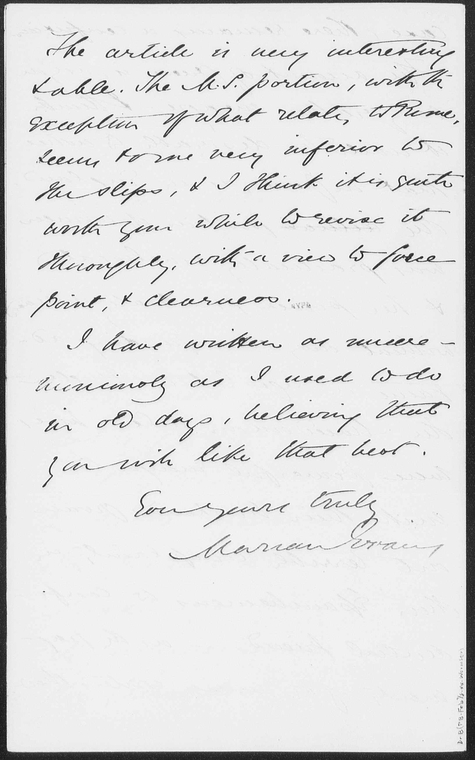 The article is very interesting
& able. The M.S. portion, with the
exception of what relates to Rome,
seems to me very inferior to
the slips, & I think it is quite
worth your while to revise it
thoroughly, with a view to force
point, & clearness.
I have written as uncere-
moniously as I used to do
in old days, believing that
you will like that best.
Ever yours truly
Marian Evans